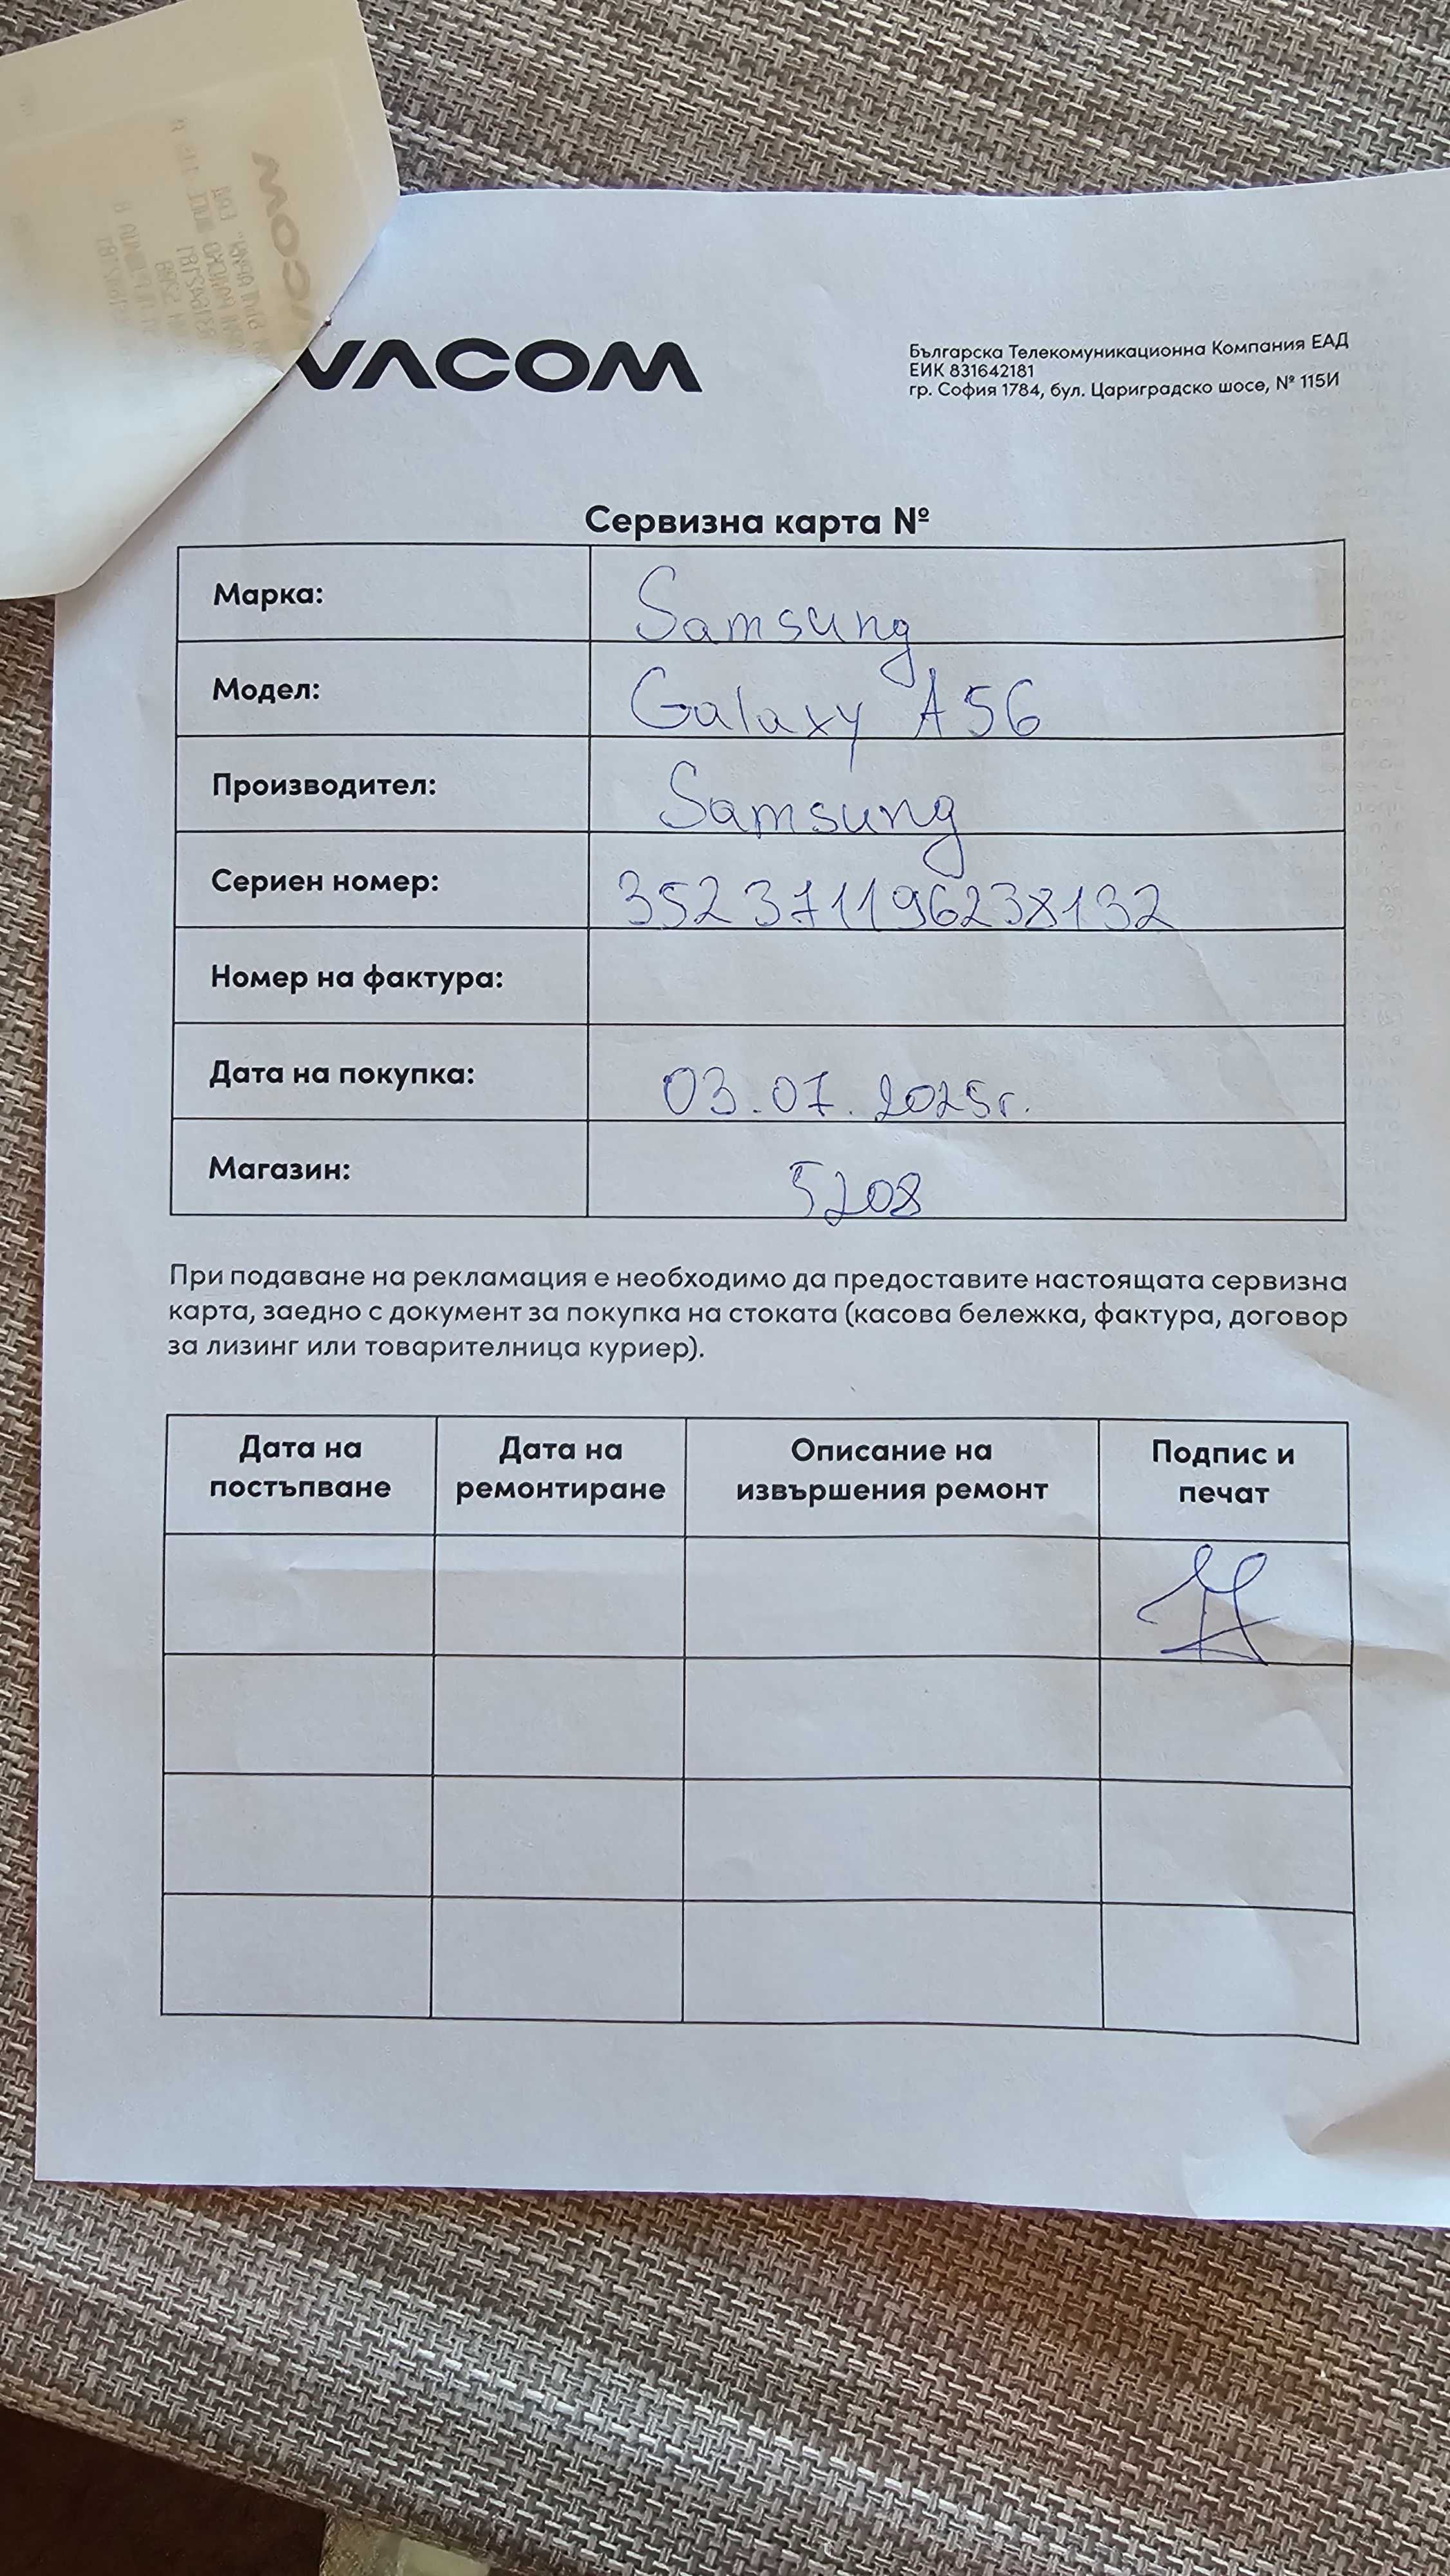 VACOM
Българска Телекомуникационна Компания ЕАД
ЕИК 831642181
гр. София 1784, бул. Цариградско шосе, № 115И
Сервизна карта №
Марка: Samsung
Модел: Galaxy A56
Производител: Samsung
Сериен номер: 352371196238132
Номер на фактура:
Дата на покупка: 03.07.2025г.
Магазин: 5208
При подаване на рекламация е необходимо да предоставите настоящата сервизна
карта, заедно с документ за покупка на стоката (касова бележка, фактура, договор
за лизинг или товарителница куриер).
Дата на постъпване
Дата на ремонтиране
Описание на извършения ремонт
Подпис и печат